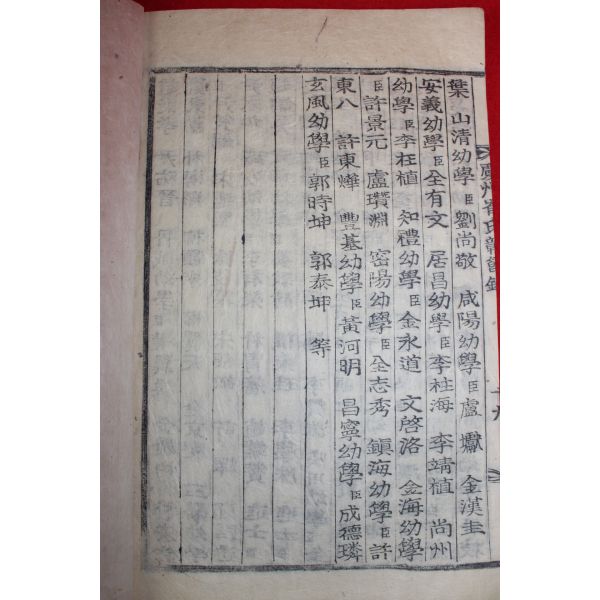 葉 山清幼學臣劉尚敬 咸陽幼學臣盧 巘 金漢圭
安義幼學臣全有文 居昌幼學臣李柱海 李靖植 尚州
幼學臣李枉植 知禮幼學臣金永道 文啓洛 金海幼學
臣許景元 盧瓚淵 密陽幼學臣全志秀 鎭海幼學臣許
東八 許東燁 豐基幼學臣黃河明 昌寧幼學臣成德璘
玄風幼學臣郭時坤 郭泰坤 等